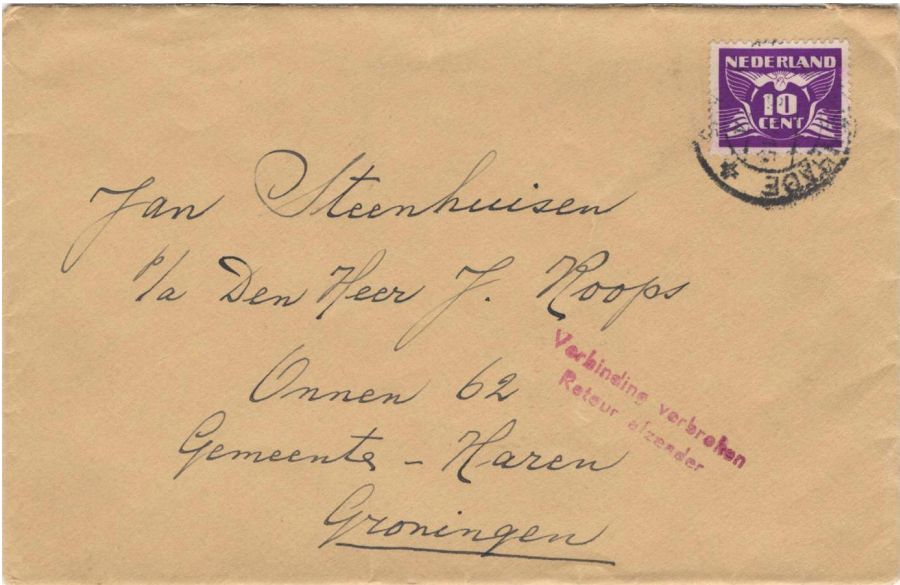 NEDERLAND
10
CENT
Jan Steenhuisen
p/a Den Heer J. Koops
Onnen 62
Gemeente - Haren
Groningen
Verbinding verbroken
Retour afzender